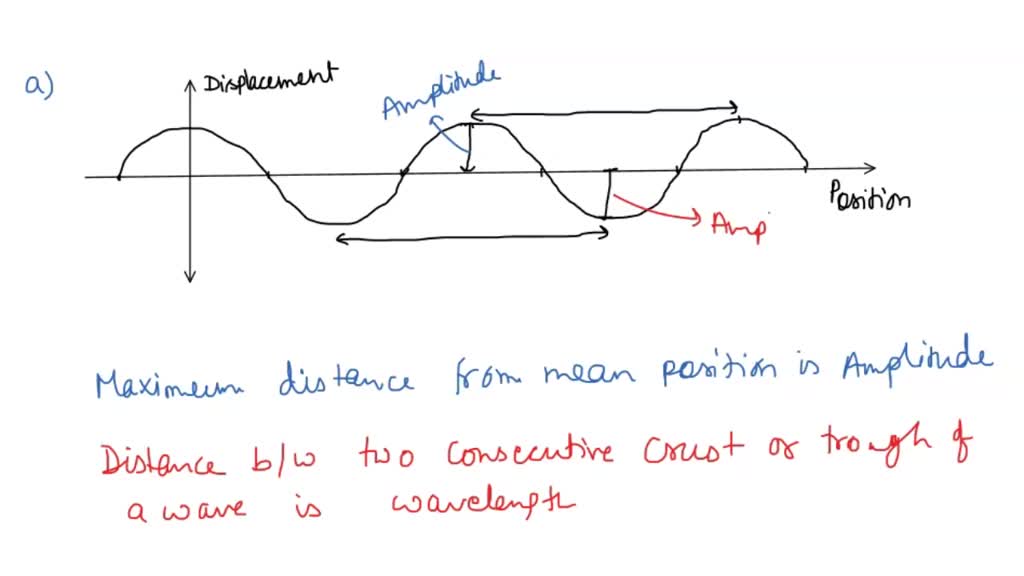 a)
Displacement
Amplitude
Position
Amp
Maximum distance from mean position is Amplitude
Distance b/w two consecutive crust or trough of
a wave is wavelength